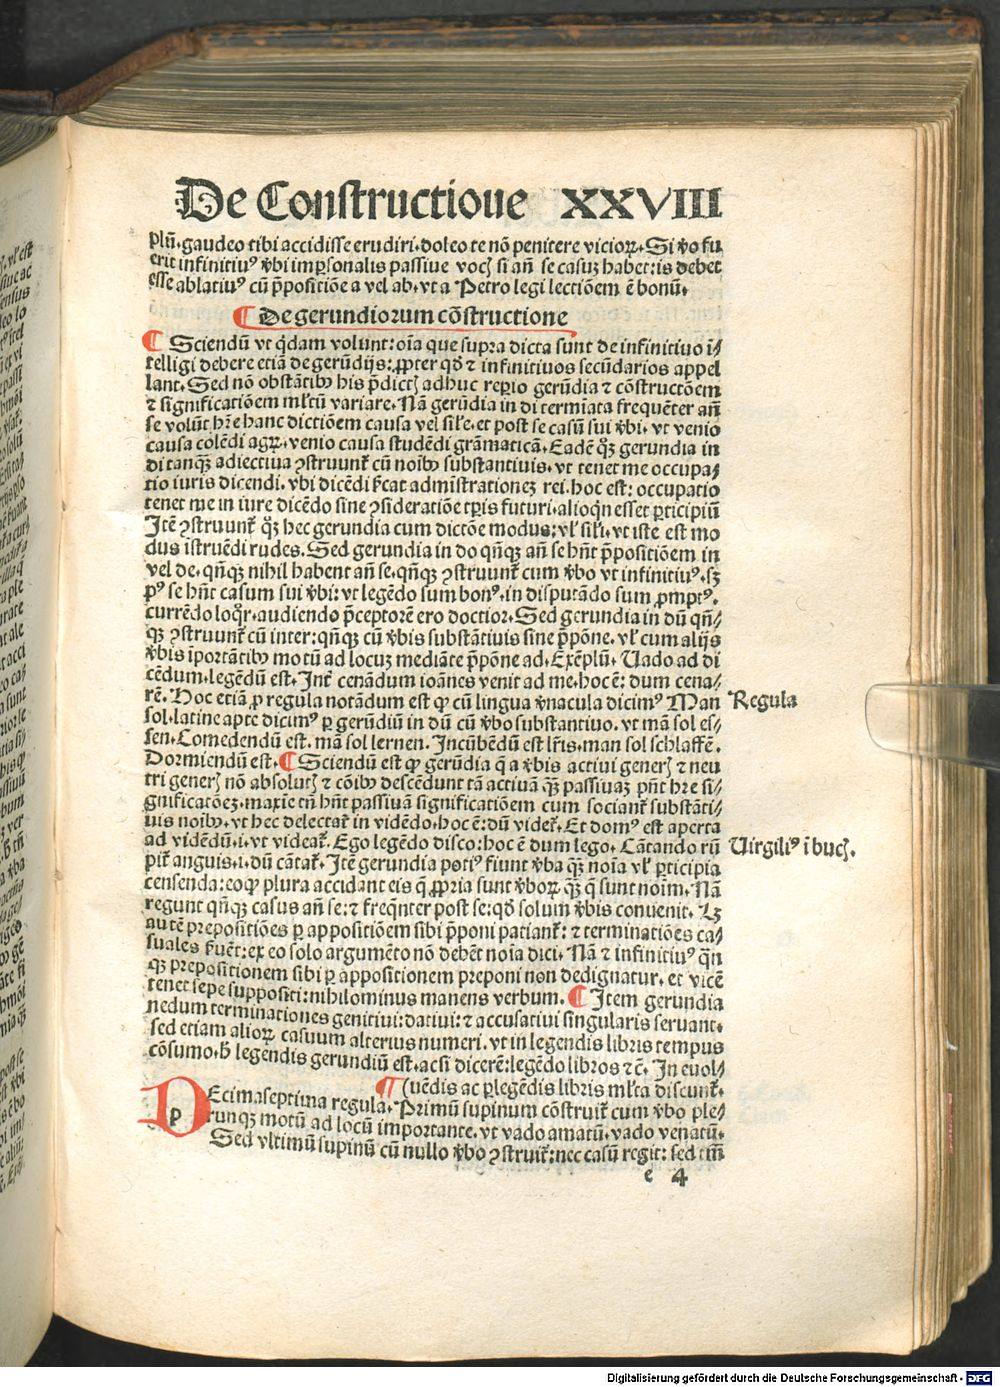 De Constructioue XXVIII
plū. gaudeo tibi accidisse erudiri. doleo te nō penitere vicioꝝ. Si ꝟo fu
erit infinitiuꝰ ꝟbi impsonalis passiue vocꝭ si añ se casuꝫ habet: is debet
esse ablatiuꝰ cū p̄positiōe a vel ab. vt a Petro legi lectiōem ē bonū.
¶ De gerundiorum cōstructione
¶ Sciendū vt qͥdam volunt: oīa que supra dicta sunt de infinitiuo ī⸗
telligi debere etiā de gerūdijs: ꝓpter qd̄ ⁊ infinitiuos secūdarios appel
lant. Sed nō obstātibꝰ his p̄dictꝭ adhuc reꝑio gerūdia ⁊ cōstructōem
⁊ significatiōem ml̓tū variare. Nā gerūdia in di termīata frequēter añ
se volūt hr̄e hanc dictiōem causa vel sil̓e. et post se casū sui ꝟbi. vt venio
causa colēdi agrꝝ. venio causa studēdi grāmaticā. Eadē qͦꝫ gerundia in
di tanqꝫ̄ adiectiua ꝯstruunt̃ cū noībꝰ substantiuis. vt tenet me occupa⸗
tio iuris dicendi. vbi dicēdi ẜcat admīstrationeꝫ rei. hoc est: occupatio
tenet me in iure dicēdo sine ꝯsideratiōe tꝑis futuri. alioqͥn esset ꝑticipiū
Itē ꝯstruunt̃ qͦꝫ hec gerundia cum dictōe modus: vl̓ sil̓i. vt iste est mo
dus īstruēdi rudes. Sed gerundia in do qn̄qꝫ añ se hñt p̄positiōem in
vel de. qn̄qꝫ nihil habent añ se. qn̄qꝫ ꝯstruunt̃ cum ꝟbo vt infinitiuꝰ. sꝫ
pꝰ se hñt casum sui ꝟbi: vt legēdo sum bonꝰ. in disputādo sum ꝓmptꝰ.
currēdo loqͦr. audiendo p̄ceptorē ero doctior. Sed gerundia in dū qn̄⸗
qꝫ ꝯstruunt̃ cū inter: qn̄qꝫ cū ꝟbis substātiuis sine p̄pōne. vl̓ cum alijs
ꝟbis īportātibꝰ motū ad locuꝫ mediāte p̄pōne ad. Exēplū. Uado ad di
cēdum. legēdū est. Int̓ cenādum ioānes venit ad me. hoc ē: dum cena⸗
rē. Hoc etiā ꝓ regula notādum est ꝙ cū lingua ꝟnacula dicimꝰ Man
sol. latine apte dicimꝰ ꝑ gerūdiū in dū cū ꝟbo substantiuo. vt mā sol es⸗
sen. Comedendū est. mā sol lernen. Incūbēdū est lr̄is. man sol schlaffē.
Dormiendū est. ¶ Sciendū est ꝙ gerūdia q̄ a ꝟbis actiui generꝭ ⁊ neu
tri generꝭ nō absolutꝭ ⁊ cōibꝰ descēdunt tā actiuā qꝫ̄ passiuaꝫ pn̄t hr̄e si⸗
gnificatōeꝫ. maxīe tn̄ hn̄t passiuā significatiōem cum sociant̃ substāti⸗
uis noībꝰ. vt hec delectat̃ in vidēdo. hoc ē: dū videt̃. Et domꝰ est aperta
ad vidēdū. i. vt videat̃. Ego legēdo disco: hoc ē dum lego. Cātando rū
pit̃ anguis. i. dū cātat̃. Itē gerundia potiꝰ fiunt ꝟba qꝫ̄ noīa vl̓ ꝑticipia
censenda: eo ꝙ plura accidant eis q̄ ꝓpria sunt ꝟboꝝ qꝫ̄ q̄ sunt noīm. Nā
regunt qn̄qꝫ casus añ se: ⁊ freqn̄ter post se: qd̄ solum ꝟbis conuenit. Lꝫ
autē prepositiōes ꝑ appositiōem sibi p̄poni patiant̃: ⁊ terminatiōes ca⸗
suales ẜuēt: ex eo solo argumēto nō debēt noīa dici. Nā ⁊ infinitiuꝰ qn̄
qꝫ prepositionem sibi ꝑ appositionem preponi non dedignatur. et vicē
tenet sepe suppositi: nihilominus manens verbum. ¶ Item gerundia
nedum terminationes genitiui: datiui: ⁊ accusatiui singularis seruant.
sed etiam alioꝝ casuum alterius numeri. vt in legendis libris tempus
cōsumo. h̄ legendis gerundiū est. acsi dicerē: legēdo libros ⁊ cͤ. In euol⸗
¶ (uēdis ac ꝑlegēdis libris ml̓ta discunt̃.
DEcimaseptima regula. Primū supinum cōstruit̃ cum ꝟbo ple⸗
p runqꝫ motū ad locū importante. vt vado amatū. vado venatū.
Sed vltimū supinū cū nullo ꝟbo ꝯstruit̃: nec casū regit: sed tm̄
e 4
Regula
Uirgiliꝰ ī bucꝭ.
Digitalisierung gefördert durch die Deutsche Forschungsgemeinschaft - DFG